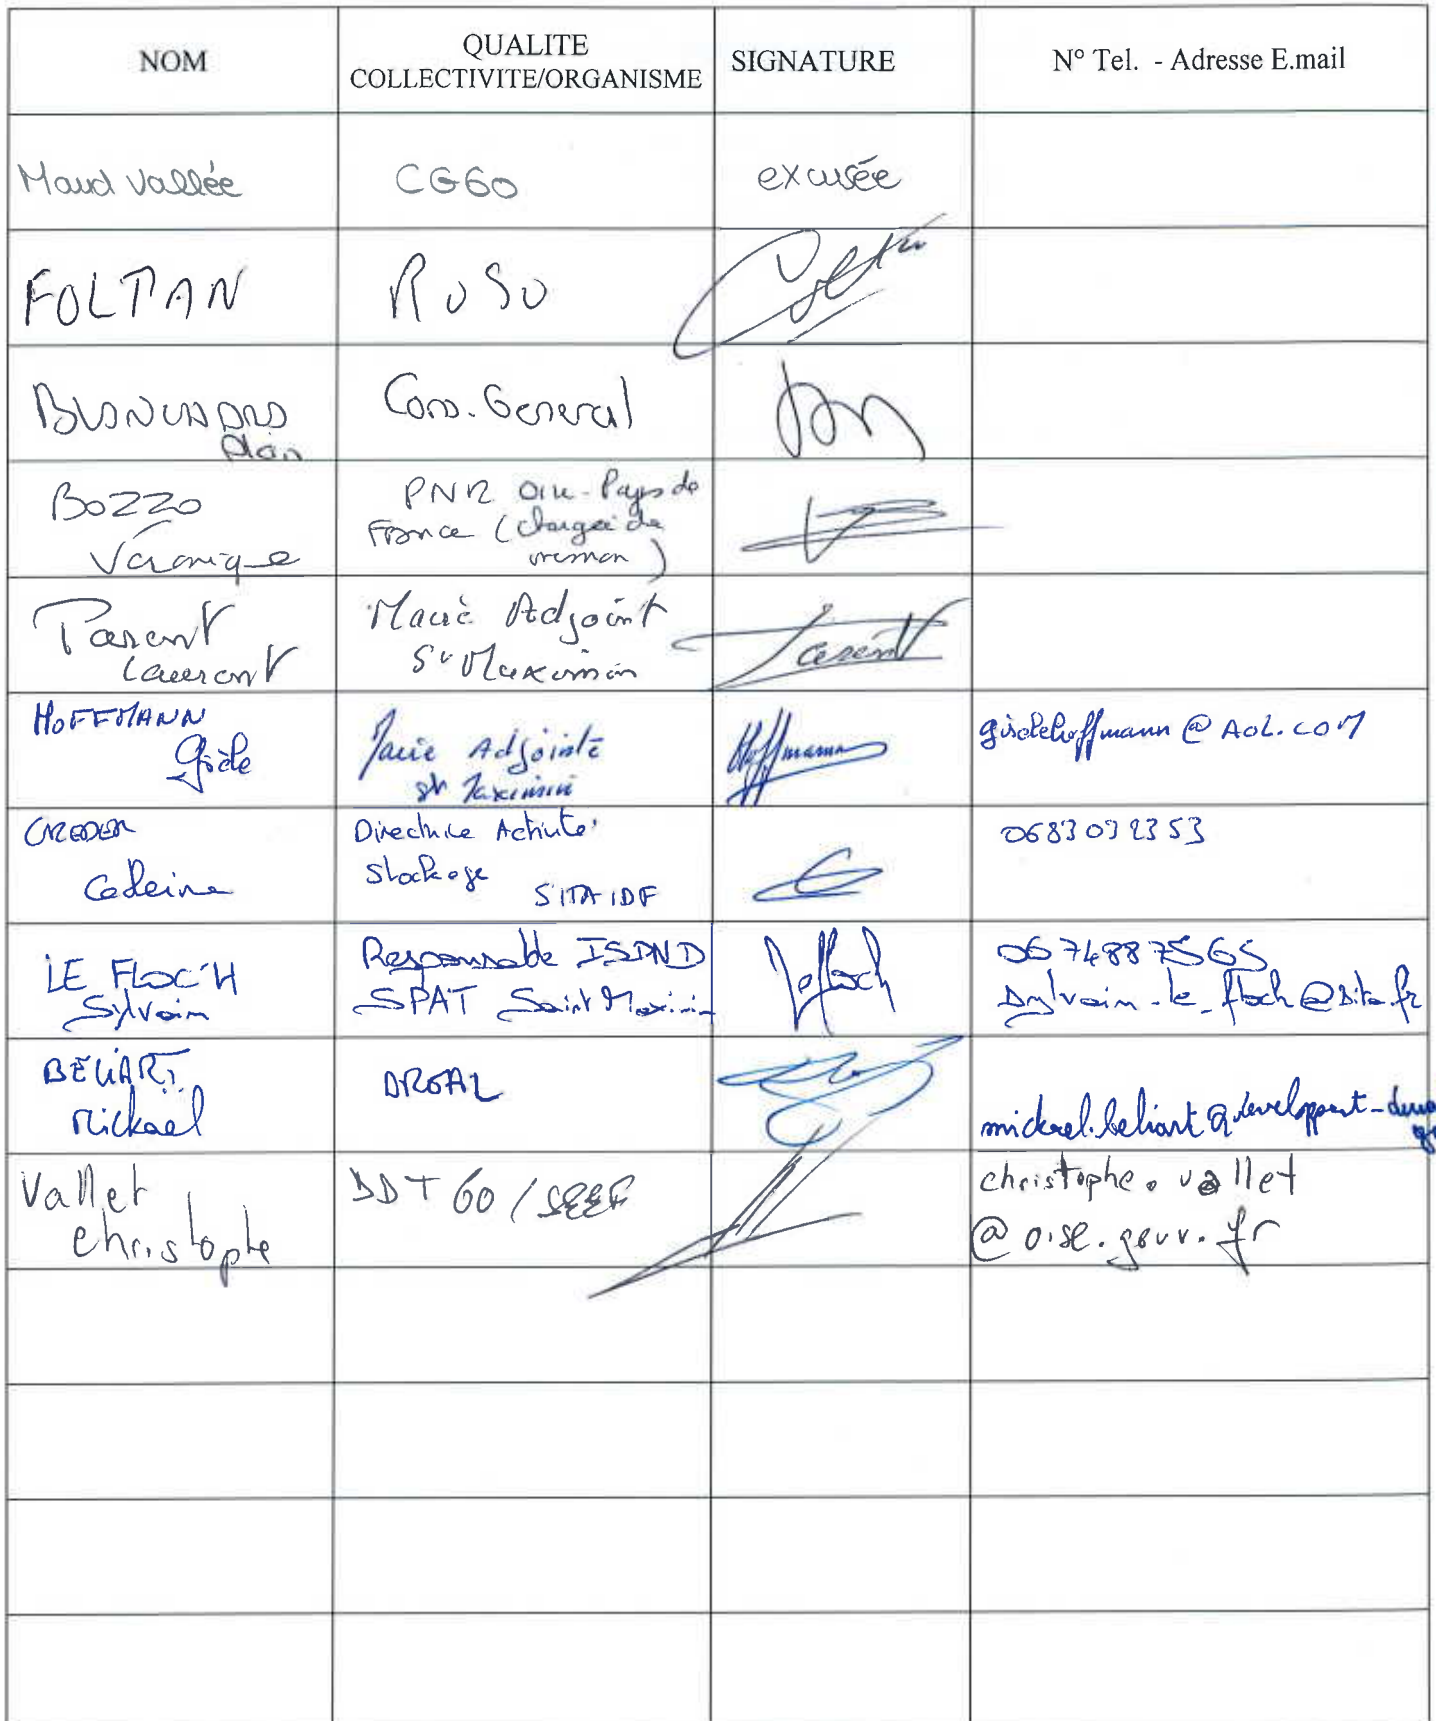 NOM
QUALITE
COLLECTIVITE/ORGANISME
SIGNATURE
N° Tel. - Adresse E.mail
Maud Vallée
CG60
excusée
FOLTRAN
ROSO
Cons. General
BOZZO
Véronique
PNR Oise-Pays de
France (chargée de
mission)
Parent
Laurent
Maire Adjoint
St Maximin
Parent
HOFFMANN
Gisèle
Maire Adjointe
St Maximin
Hoffmann
giselehoffmann@AOL.COM
Directrice Activité
stockage
SITA IDF
LE FLOC'H
Sylvain
Responsable ISDND
SPAT Saint Maximin
Lefloch
0674887565
sylvain.le_floch@sita.fr
BELIART
Mickael
DREAL
mickael.beliart@
Vallet
christophe
DDT 60 / SEEF
christophe.vallet
@oise.gouv.fr